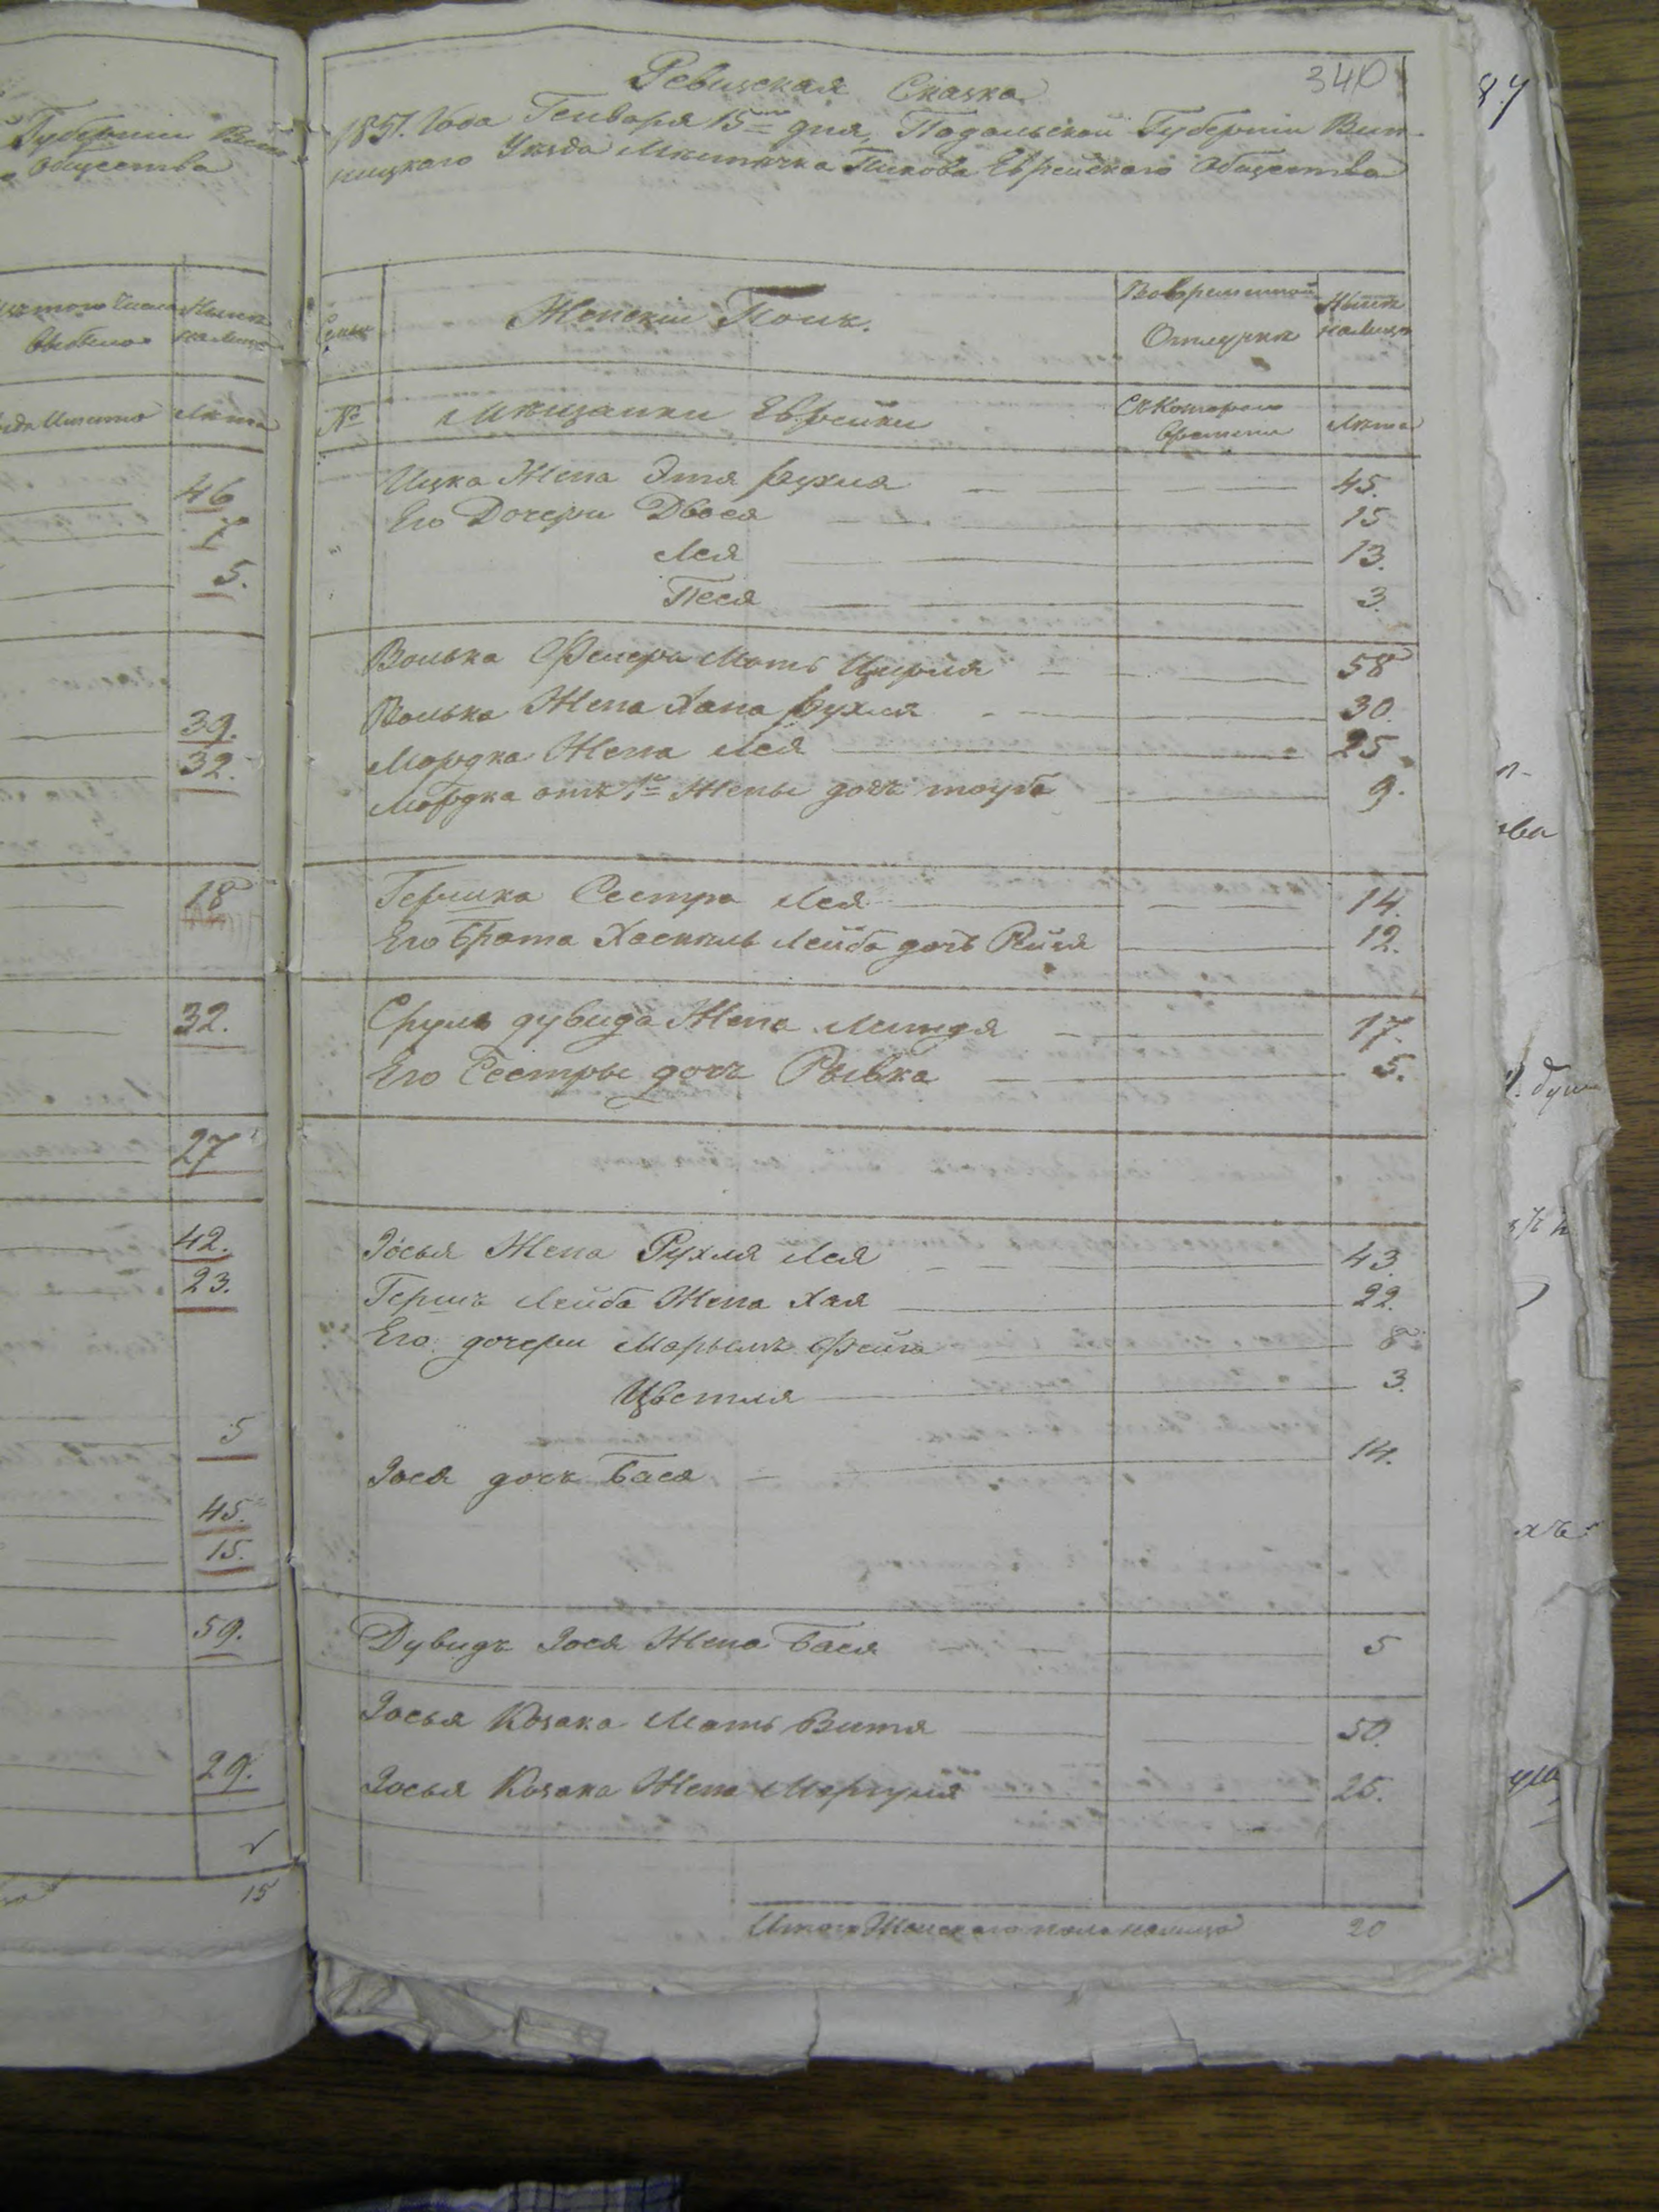 340
Ревизская Сказка
1851. Года Генваря 15го дня, Подольской Губернии Вин-
ницкаго Уезда Мѣстѣчка Пикова Еврейскаго Общества
Женскiй Полъ.
Во временной Отлучкѣ
Нынѣ налицо
№
Мѣщанки Еврейки
Съ Котораго времени
Лѣта
Ицка Жена Этя Рухля 45.
Его Дочери Двося 15
Лея 13.
Песя 3.
Волька Мать Цирля 58
Волька Жена Хана Рухля 30.
Мордка Жена Лея 25
Мордка отъ 1й Жены дочь тауба 9.
Гершка Сестра Лея 14.
Его Брата Хаскель Лейба дочь Рейзя 12.
Сруль дувида Жена 17.
Его Сестры дочь Рывка 5.
Iосья Жена Рухля Лея 43.
Гершъ Лейба Жена Хая 22.
Его дочери Марьямъ Фейга 8
Цветля 3.
Iося дочь Бася 14.
Дувидъ Iося Жена Бася 5
Iосья Козака Мать Витя 50.
Iосья Козака Жена 25.
Итого Женскаго пола налицо 20
Губернiи
Общества
выбыло
Нынѣ налицо
Лѣта
46
7
5.
39.
32.
18
32.
27
42.
23.
5
45.
15.
59.
29.
15
87